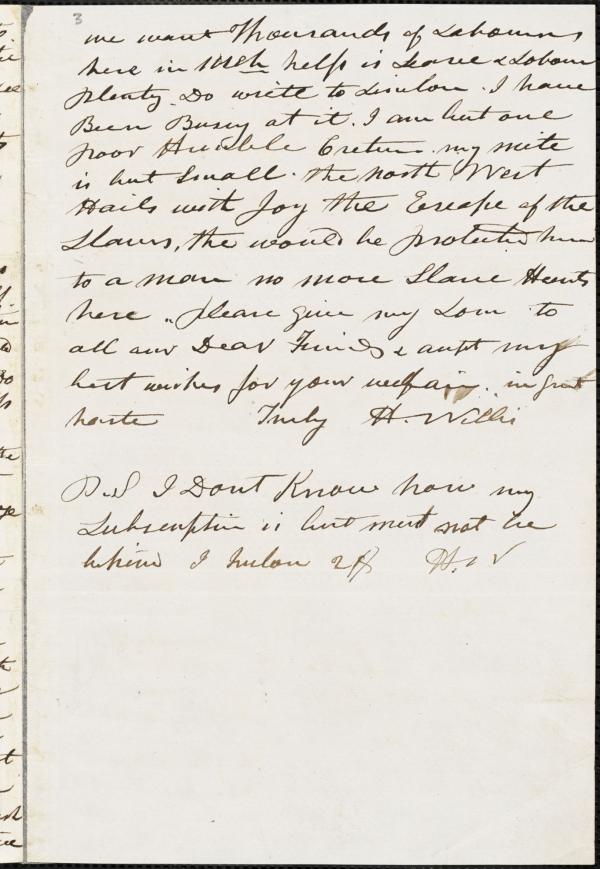 3
we want Thousands of Labourers
here in Mich help is scarce & Labour
plenty. Do write to Lincoln. I have
Been Busy at it. I am but one
poor Humble Creture. my mite
is but Small. the North West
Hails with Joy the Escape of the
Slaves, the would be protected here
to a man no more Slave Hunts
here. please give my Love to
all our Dear Friends & accept my
best wishes for your welfair. in great
haste Truly H. Willis
P.S I Dont Know how my
Subscription is but must not be
behind I inclose 2$ H. W